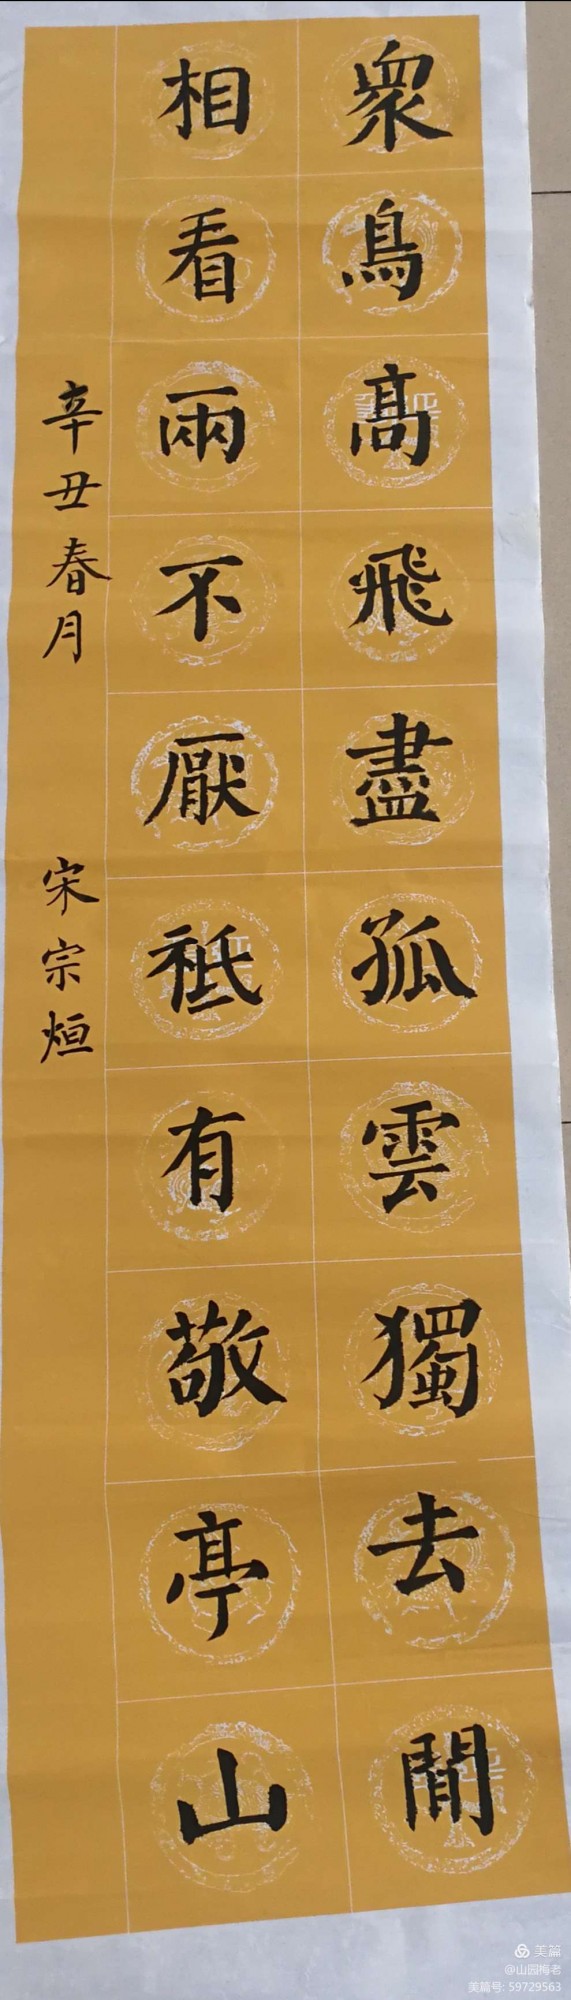 衆鳥髙飛盡孤雲獨去閒
相看兩不厭祗有敬亭山
辛丑春月 宋宗烜
美篇
@山园梅老
美篇号: 59729563